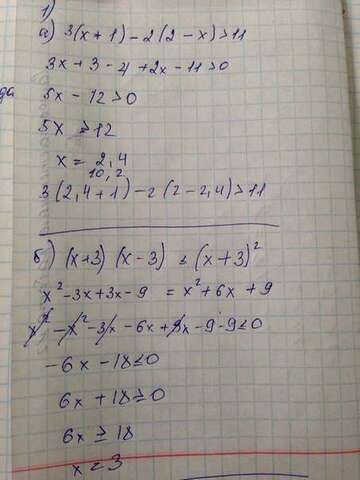 1)
а) 3(x+1)-2(2-x)>11
3x+3-4+2x-11>0
5x-12>0
5x>12
x=2,4
10,2
3(2,4+1)-2(2-2,4)>11
б) (x+3)(x-3)≤(x+3)²
x²-3x+3x-9=x²+6x+9
x²-x²-3x-6x+3x-9-9≤0
-6x-18≤0
6x+18≥0
6x≥18
x=3